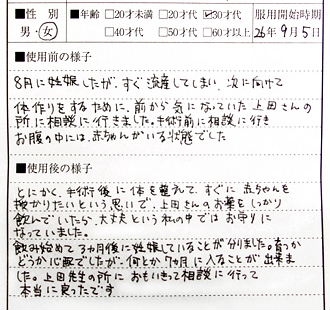 ■性 別 ■年齢 □20才未満 □20才代 ☑30才代 服用開始時期
男・女 □40才代 □50才代 □60才以上 26年9月5日
■使用前の様子
8月に妊娠したが、すぐ流産してしまい、次に向けて
体作りをするために、前から気になっていた上田さんの
所に相談に行きました。手術前に相談に行き
お腹の中には、赤ちゃんがいる状態でした
■使用後の様子
とにかく、手術後に体を整えて、すぐに赤ちゃんを
授かりたいという思いで、上田さんのお薬をしっかり
飲んでいたら、大丈夫という私の中ではお守りに
なっていました。
飲み始めて3ヵ月後に妊娠していることが分りました。育つか
どうか心配でしたが、何とか7ヵ月に入ることが出来ま
した。上田先生の所におもいきって相談に行って
本当に良ったです